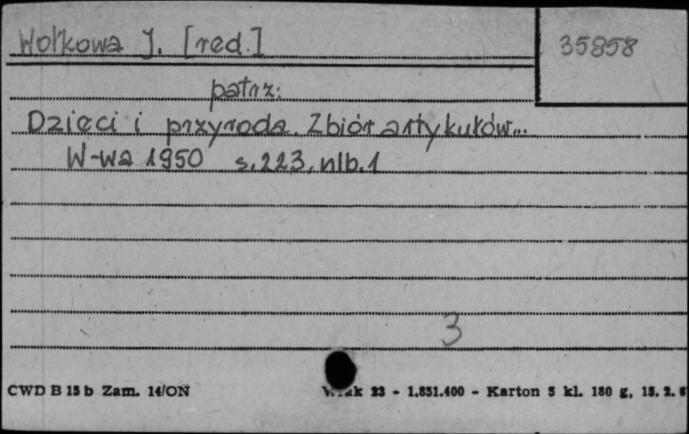 Wołkowa J. [red.]
35858
patrz:
Dzieci i przyroda. Zbiór artykułów...
W-wa 1950 s. 223, nlb. 1
3
CWD B 15 b Zam. 14/ON
23 - 1.851.400 - Karton 5 kl. 180 g, 15. 2.